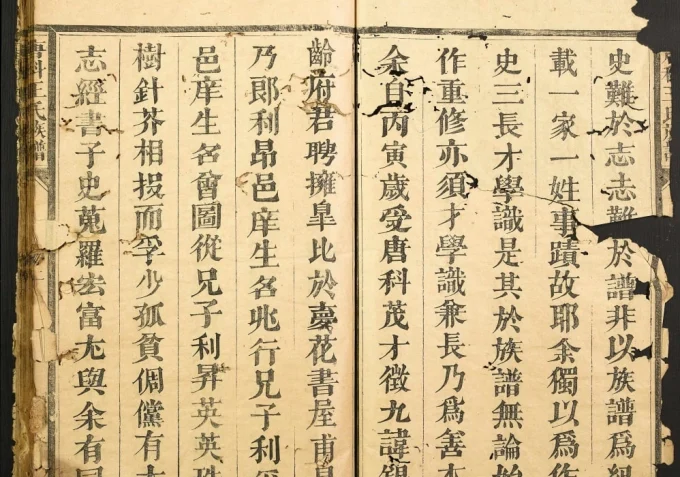 史難於志志難於譜非以族譜爲
載一家一姓事蹟故耶余獨以爲作
史三長才學識是其於族譜無論
作重修亦須才學識兼長乃爲善
余自丙寅歲受唐科茂才徵九諱
齡府君聘擁皐比於慶花書屋甫
乃郎利昂邑庠生名兆行兄子利
邑庠生名會圖從兄子利昇英英
樹針芥相投而孚少孤貧倜儻有
志經書子史蒐羅宏富尤與余有
唐科王氏族譜